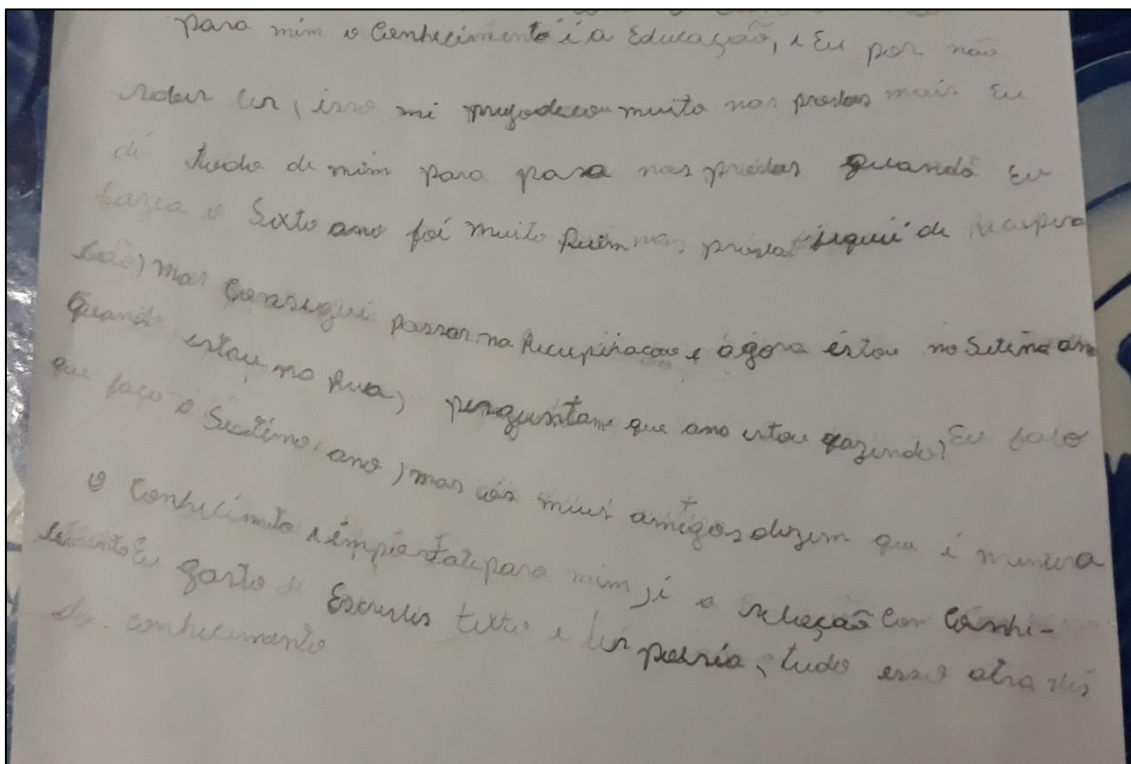 para mim o Conhecimento é a Educação, e Eu por não
saber ler, isso mi prejodicou muito nas provas mais Eu
dé tudo de mim para pasa nas provas quando Eu
fazia o Sixto ano foi muito Ruim nas provas fiquei de Recupera
ção, mas Consegui passar na Recuperacao e ágora éstou no Setimo ano
Quando estou na Rua, perguntam que ano estou fazendo, Eu falo
que faço o Seotimo ano, mas os meus amigos dizem que é mentira
o Conhecimeto é para mim, é a relação Com Conhi-
cimento Eu gosto de Escrever texto e ler poesia, tudo esso atra vés
do conhecimento